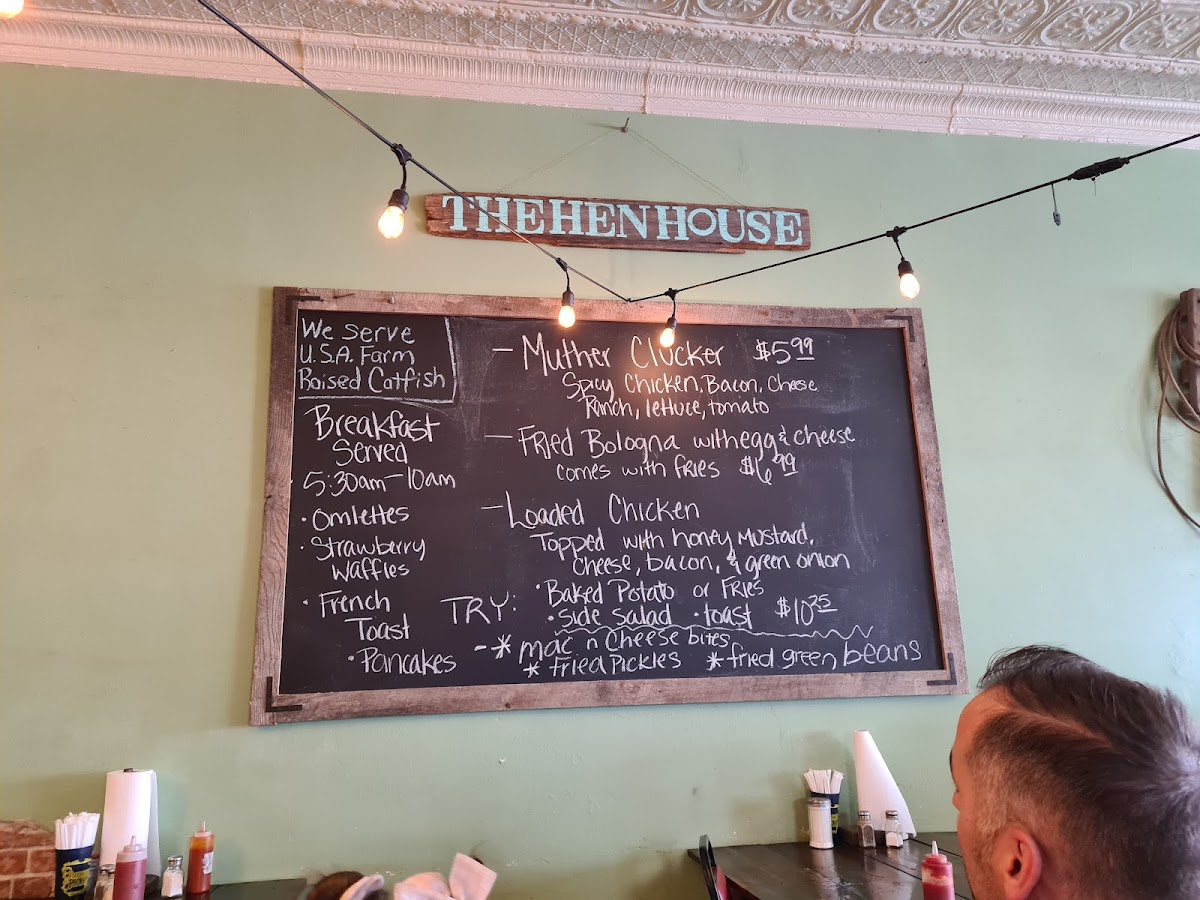 THE HEN HOUSE
We Serve
U.S.A. Farm
Raised Catfish
Breakfast
Served
5:30am-10am
• Omlettes
• Strawberry
Waffles
• French
Toast
• Pancakes
- Muther Clucker $5.99
Spicy Chicken, Bacon, Cheese
Ranch, lettuce, tomato
- Fried Bologna with egg & cheese
comes with fries $6.99
- Loaded Chicken
Topped with honey mustard,
cheese, bacon, & green onion
• Baked Potato or Fries
• side salad • toast $10.35
TRY:
- * mac n cheese bites
* Fried Pickles * fried green beans